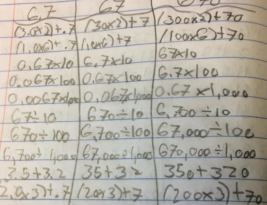 6.7 67 670
(3.0x2)+.7 (30x2)+7 (300x2)+70
(1.0x6)+.7 (10x6)+7 (100x6)+70
0.67x10 6.7x10 67x10
0.067x100 0.67x100 6.7x100
0.0067x1,000 0.067x1,000 0.67x1,000
67÷10 670÷10 6,700÷10
670÷100 6,700÷100 67,000÷100
6,700÷1,000 67,000÷1,000 670,000÷1,000
3.5+3.2 35+32 350+320
(2.0x3)+.7 (20x3)+7 (200x3)+70